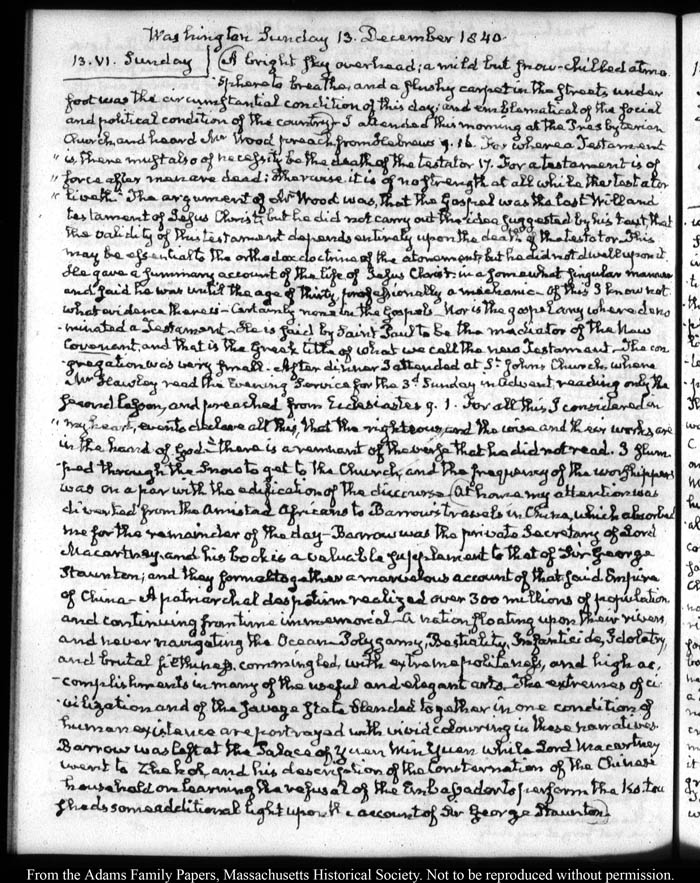 Washington Sunday 13. December 1840.
13. VI. Sunday
A bright sky overhead; a mild but snow-chilled atmo-
sphere to breathe, and a slushy carpet in the streets under
foot was the circumstantial condition of this day; and emblematical of the social
and political condition of the country. I attended this morning at the Presbyterian
Church, and heard Mr Wood preach from Hebrews 9. 16. For where a Testament
" is there must also of necessity be the death of the testator 17. For a testament is of
" force after men are dead: otherwise it is of no strength at all while the testator
" liveth." The argument of Mr Wood was, that the Gospel was the last Will and
testament of Jesus Christ; but he did not carry out the idea suggested by his text, that
the validity of this testament depends entirely upon the death of the testator. This
may be essential to the orthodox doctrine of the atonement; but he did not dwell upon it.
He gave a summary account of the life of Jesus Christ in a somewhat singular manner
and said he was until the age of thirty professionally a mechanic. Of this I know not
what evidence there is— Certainly none in the Gospels. Nor is the gospel any where deno-
-minated a Testament. He is said by Saint Paul to be the mediator of the New
Covenant, and that is the Greek title of what we call the new Testament. The con-
gregation was very small. After dinner I attended at St. Johns Church, where
Mr Hawley read the Evening Service for the 3d Sunday in Advent, reading only the
second lesson, and preached from Ecclesiastes 9. 1. For all this I considered in
" my heart, even to declare all this, that the righteous, and the wise and their works are
in the hand of God." there is a remnant of the verse that he did not read. I slum-
-ped through the Snow to get to the Church, and the frequency of the worshippers
was on a par with the edification of the discourse. At home my attention was
diverted from the Amistad Africans to Barrow's travels in China, which absorbed
me for the remainder of the day— Barrow was the private Secretary of Lord
Macartney, and his book is a valuable supplement to that of Sir George
Staunton; and they form altogether a marvelous account of that said Empire
of China— A patriarchal despotism realized over 300 millions of population
and continuing from time immemorial— A nation floating upon their rivers
and never navigating the Ocean— Polygamy, Bestiality, Infanticide, Idolatry,
and brutal filthiness, commingled, with extreme politeness, and high ac-
-complishments in many of the useful and elegant arts. The extremes of ci-
-vilization and of the savage state blended together in one condition of
human existence are portrayed with vivid colouring in these narratives.
Barrow was left at the Palace of Yuen Min Yuen while Lord Macartney
went to Zhehol, and his description of the Consternation of the Chinese
household on learning the refusal of the Embassador to perform the Ko-tou
sheds some additional light upon the account of Sir George Staunton.
From the Adams Family Papers, Massachusetts Historical Society. Not to be reproduced without permission.